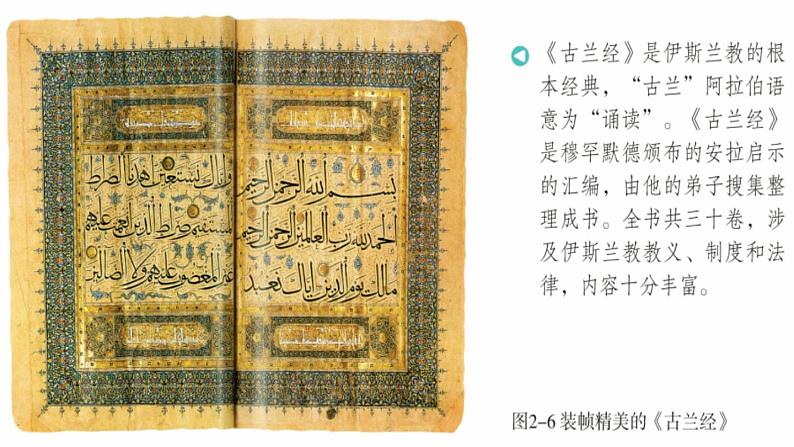 بسم الله الرحمن الرحيم
الحمد لله رب العالمين الرحمن الرحيم
مالك يوم الدين اياك نعبد
واياك نستعين اهدنا الصراط
المستقيم صراط الذين انعمت عليهم
غير المغضوب عليهم ولا الضالين
《古兰经》是伊斯兰教的根
本经典，“古兰”阿拉伯语
意为“诵读”。《古兰经》
是穆罕默德颁布的安拉启示
的汇编，由他的弟子搜集整
理成书。全书共三十卷，涉
及伊斯兰教教义、制度和法
律，内容十分丰富。
图2-6 装帧精美的《古兰经》